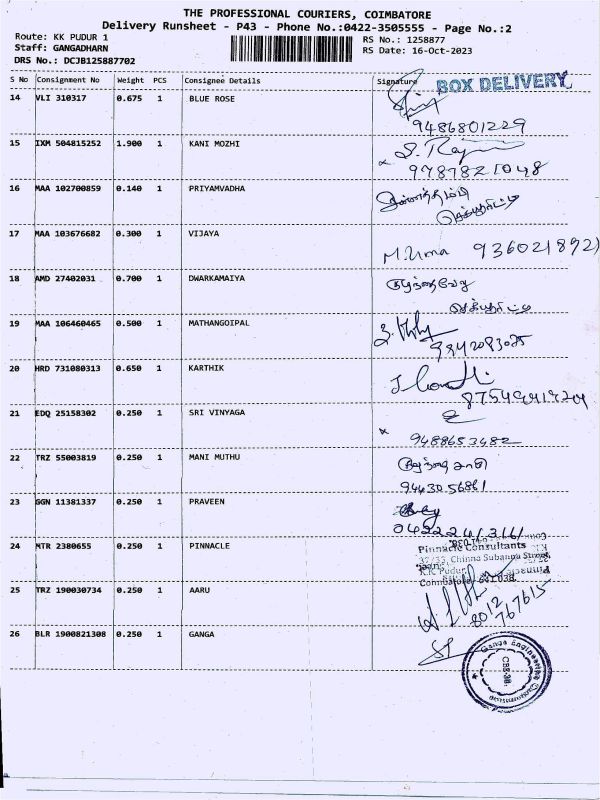 THE PROFESSIONAL COURIERS, COIMBATORE
Delivery Runsheet - P43 - Phone No.:0422-3505555 - Page No.:2
Route: KK PUDUR 1
RS No.: 1258877
Staff: GANGADHARN
RS Date: 16-Oct-2023
DRS No.: DCJB125887702
S No Consignment No Weight PCS Consignee Details Signature
BOX DELIVERY
14 VLI 310317 0.675 1 BLUE ROSE
9486801229
15 IXM 504815252 1.900 1 KANI MOZHI
9787821048
16 MAA 102700859 0.140 1 PRIYAMVADHA
17 MAA 103676682 0.300 1 VIJAYA
M.Uma 936021892
18 AMD 27402031 0.700 1 DWARKAMAIYA
19 MAA 106460465 0.500 1 MATHANGOIPAL
20 HRD 731080313 0.650 1 KARTHIK
21 EDQ 25158302 0.250 1 SRI VINYAGA
9488653482
22 TRZ 55003819 0.250 1 MANI MUTHU
9443056861
23 GGN 11381337 0.250 1 PRAVEEN
24 MTR 2380655 0.250 1 PINNACLE
Pinnacle Consultants
Chinna Subanna Street,
K.K Pudur
Coimbatore
25 TRZ 190030734 0.250 1 AARU
767615
26 BLR 1900821308 0.250 1 GANGA
Ganga Engineering
CBE-38.